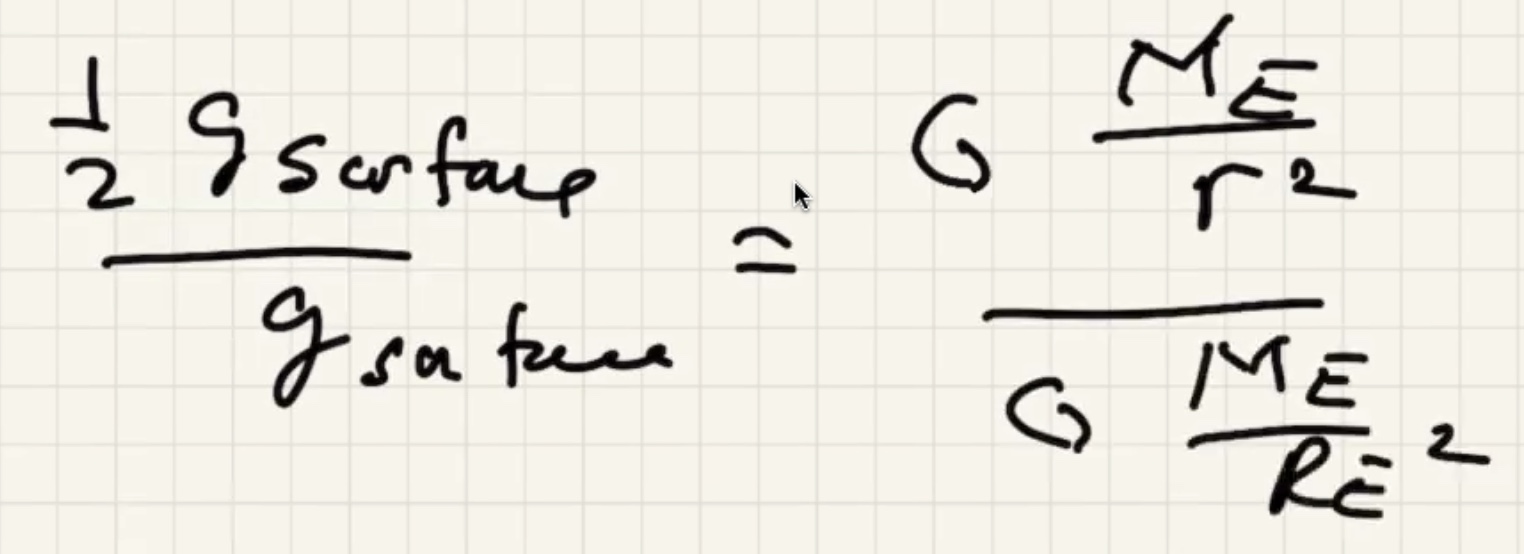 1/2 g surface / g surface = G M_E / r² / G M_E / R_E²